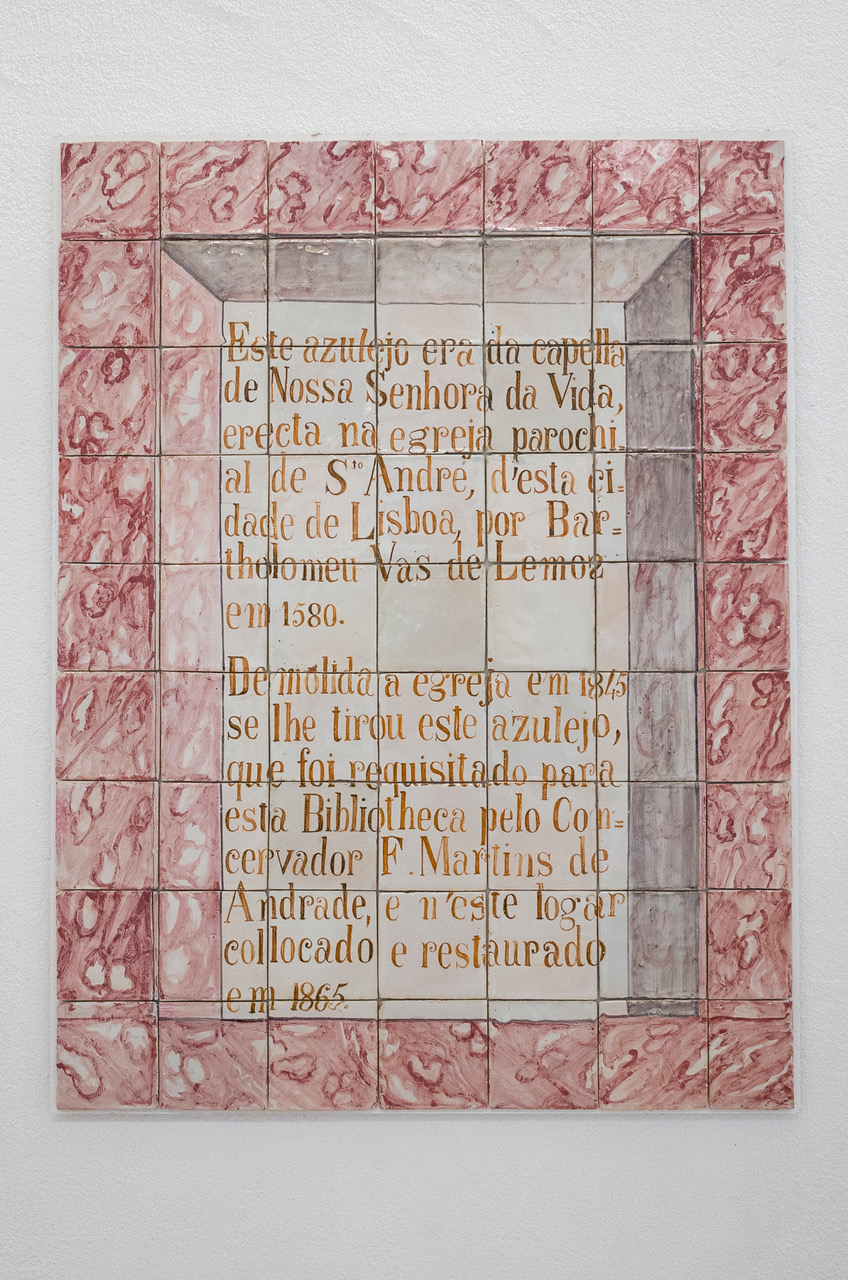 Este azulejo era da capella
de Nossa Senhora da Vida,
erecta na egreja parochi-
al de Sto André, d'esta ci=
dade de Lisboa, por Bar=
tholomeu Vas de Lemos
em 1580.
Demolida a egreja em 1845
se lhe tirou este azulejo,
que foi requisitado para
esta Bibliotheca pelo Con=
cervador F. Martins de
Andrade, e n'este logar
collocado e restaurado
em 1865.